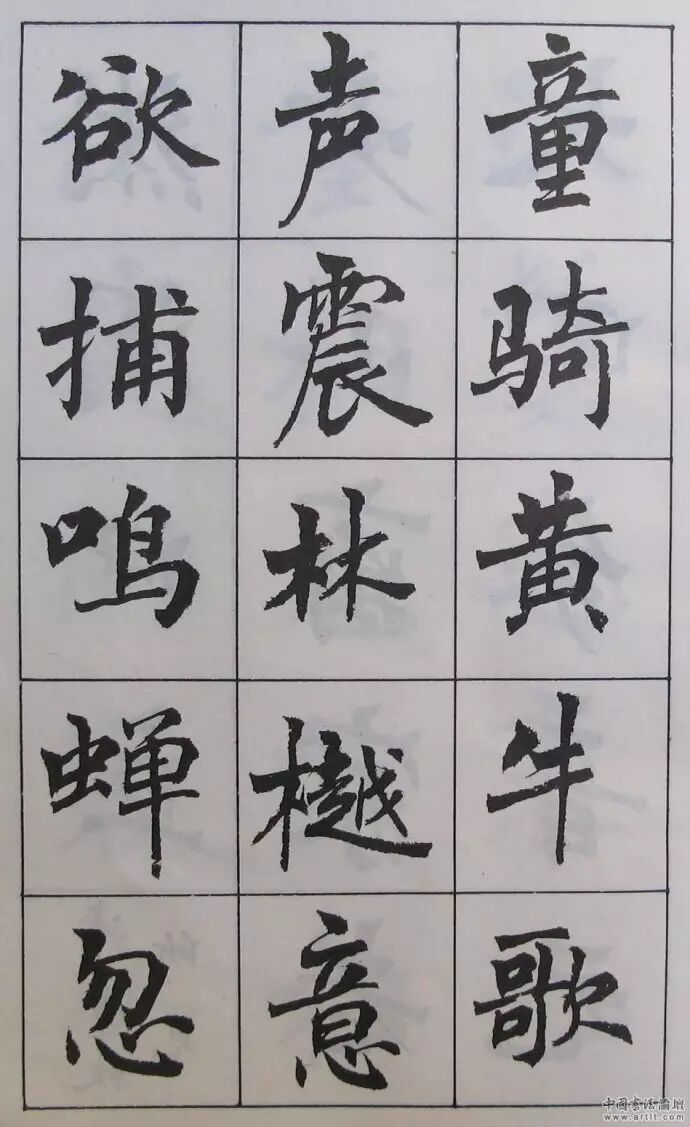 童骑黄牛歌
声震林樾意
欲捕鸣蝉忽
中国书法論壇
www.artlt.com